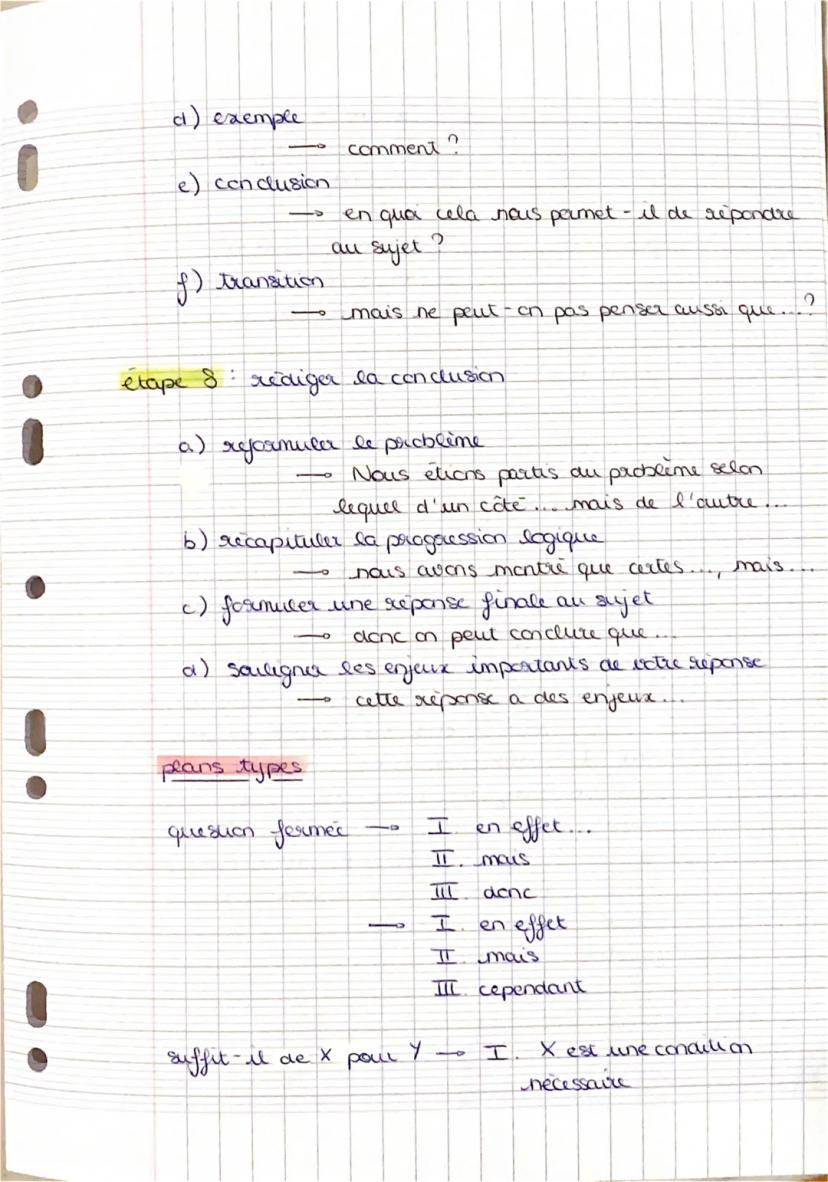 d) exemple
→ comment ?
e) conclusion
→ en quoi cela nous permet-il de répondre
au sujet ?
f) transition
→ mais ne peut-on pas penser aussi que...?
étape 8 : rédiger la conclusion
a) reformuler le problème
→ Nous étions partis du problème selon
lequel d'un côté... mais de l'autre...
b) récapituler la progression logique
→ nous avons montré que certes..., mais...
c) formuler une réponse finale au sujet
→ donc on peut conclure que...
d) souligner les enjeux importants de votre réponse
→ cette réponse a des enjeux...
plans types
question fermée → I en effet...
II. mais
III. donc
→ I. en effet
II. mais
III. cependant
suffit-il de X pour Y → I. X est une condition
nécessaire